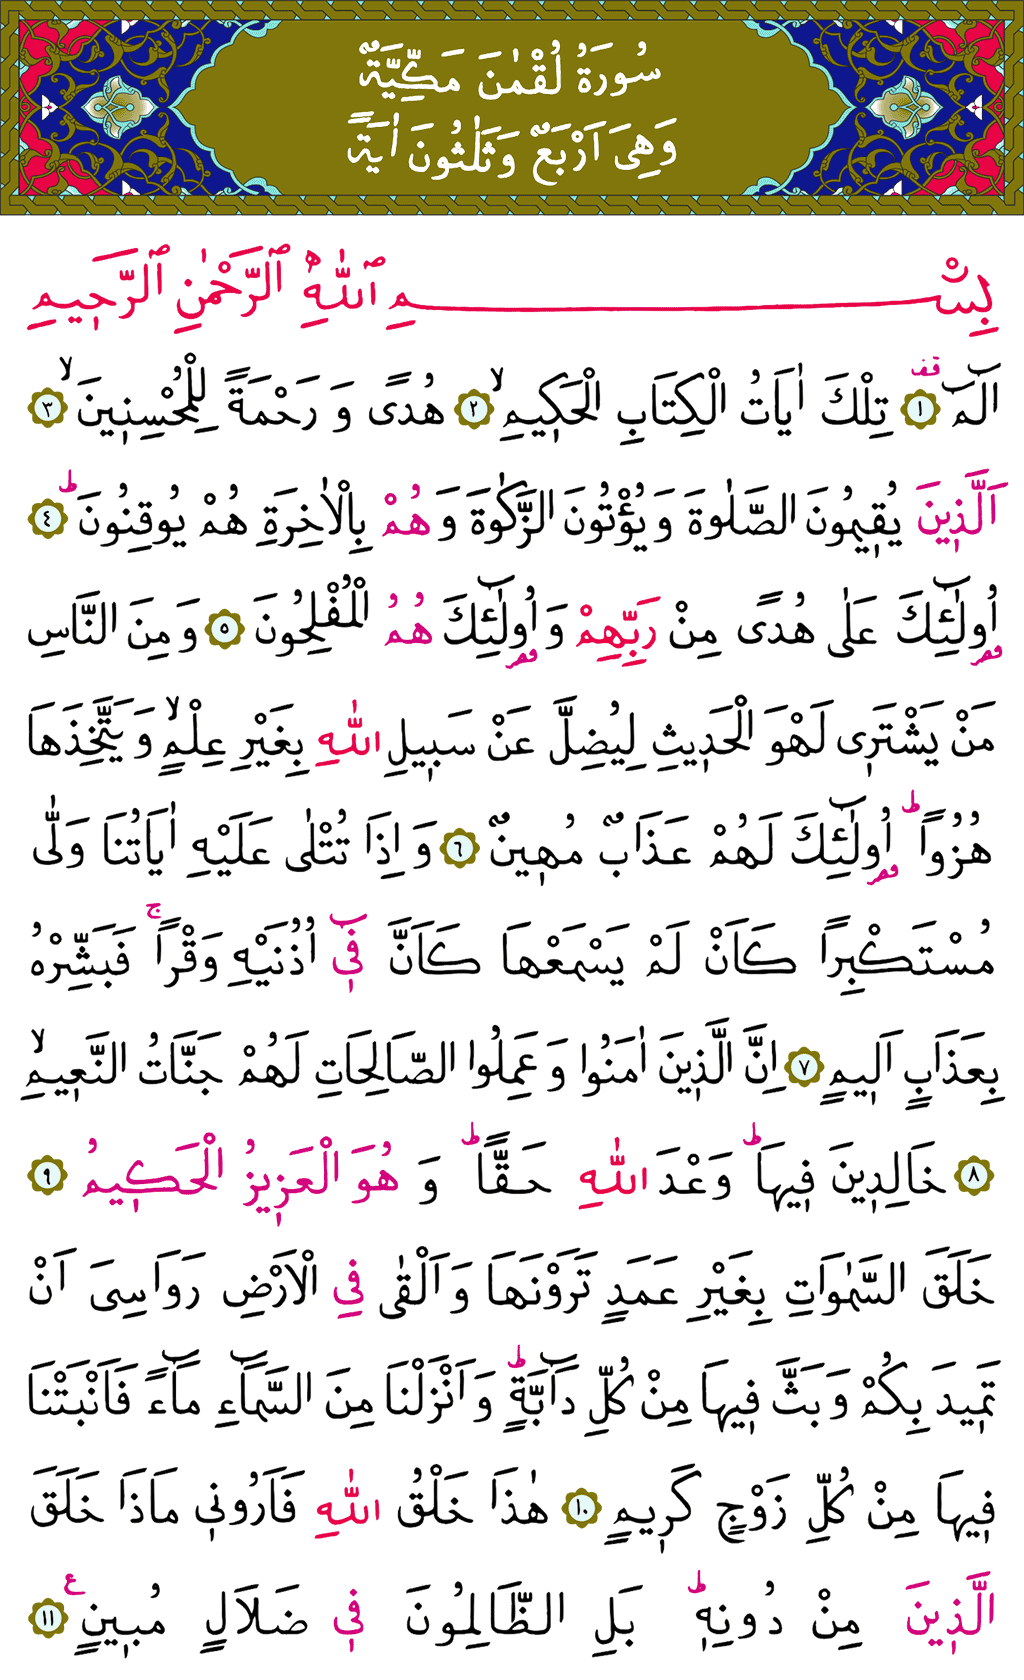 سُورَةُ لُقْمٰنَ مَكِّيَّةٌ
وَهِىَ اَرْبَعٌ وَثَلٰثُونَ اٰيَةً
بِسْمِ ٱللّٰهِ ٱلرَّحْمٰنِ ٱلرَّحٖيمِ
الٓمٓ ۚقف ﴿١﴾ تِلْكَ اٰيَاتُ الْكِتَابِ الْحَكٖيمِۙ ﴿٢﴾ هُدًى وَ رَحْمَةً لِلْمُحْسِنٖينَۙ ﴿٣﴾
اَلَّذٖينَ يُقٖيمُونَ الصَّلٰوةَ وَيُؤْتُونَ الزَّكٰوةَ وَهُمْ بِالْاٰخِرَةِ هُمْ يُوقِنُونَؕ ﴿٤﴾
اُو۬لٰٓئِكَ عَلٰى هُدًى مِنْ رَبِّهِمْ وَاُو۬لٰٓئِكَ هُمُ الْمُفْلِحُونَ ﴿٥﴾ وَمِنَ النَّاسِ
مَنْ يَشْتَرٖى لَهْوَ الْحَدٖيثِ لِيُضِلَّ عَنْ سَبٖيلِ اللّٰهِ بِغَيْرِ عِلْمٍۙ وَيَتَّخِذَهَا
هُزُواًؕ اُو۬لٰٓئِكَ لَهُمْ عَذَابٌ مُهٖينٌ ﴿٦﴾ وَاِذَا تُتْلٰى عَلَيْهِ اٰيَاتُنَا وَلّٰى
مُسْتَكْبِراً كَاَنْ لَمْ يَسْمَعْهَا كَاَنَّ فٖٓى اُذُنَيْهِ وَقْراًۚ فَبَشِّرْهُ
بِعَذَابٍ اَلٖيمٍ ﴿٧﴾ اِنَّ الَّذٖينَ اٰمَنُوا وَعَمِلُوا الصَّالِحَاتِ لَهُمْ جَنَّاتُ النَّعٖيمِۙ
﴿٨﴾ خَالِدٖينَ فٖيهَاؕ وَعْدَ اللّٰهِ حَقًّاؕ وَ هُوَ الْعَزٖيزُ الْحَكٖيمُ ﴿٩﴾
خَلَقَ السَّمٰوَاتِ بِغَيْرِ عَمَدٍ تَرَوْنَهَا وَاَلْقٰى فِى الْاَرْضِ رَوَاسِىَ اَنْ
تَمٖيدَ بِكُمْ وَبَثَّ فٖيهَا مِنْ كُلِّ دَٓابَّةٍؕ وَاَنْزَلْنَا مِنَ السَّمَٓاءِ مَٓاءً فَاَنْبَتْنَا
فٖيهَا مِنْ كُلِّ زَوْجٍ كَرٖيمٍ ﴿١٠﴾ هٰذَا خَلْقُ اللّٰهِ فَاَرُونٖى مَاذَا خَلَقَ
الَّذٖينَ مِنْ دُونِهٖؕ بَلِ الظَّالِمُونَ فٖى ضَلَالٍ مُبٖينٍ ع ﴿١١﴾